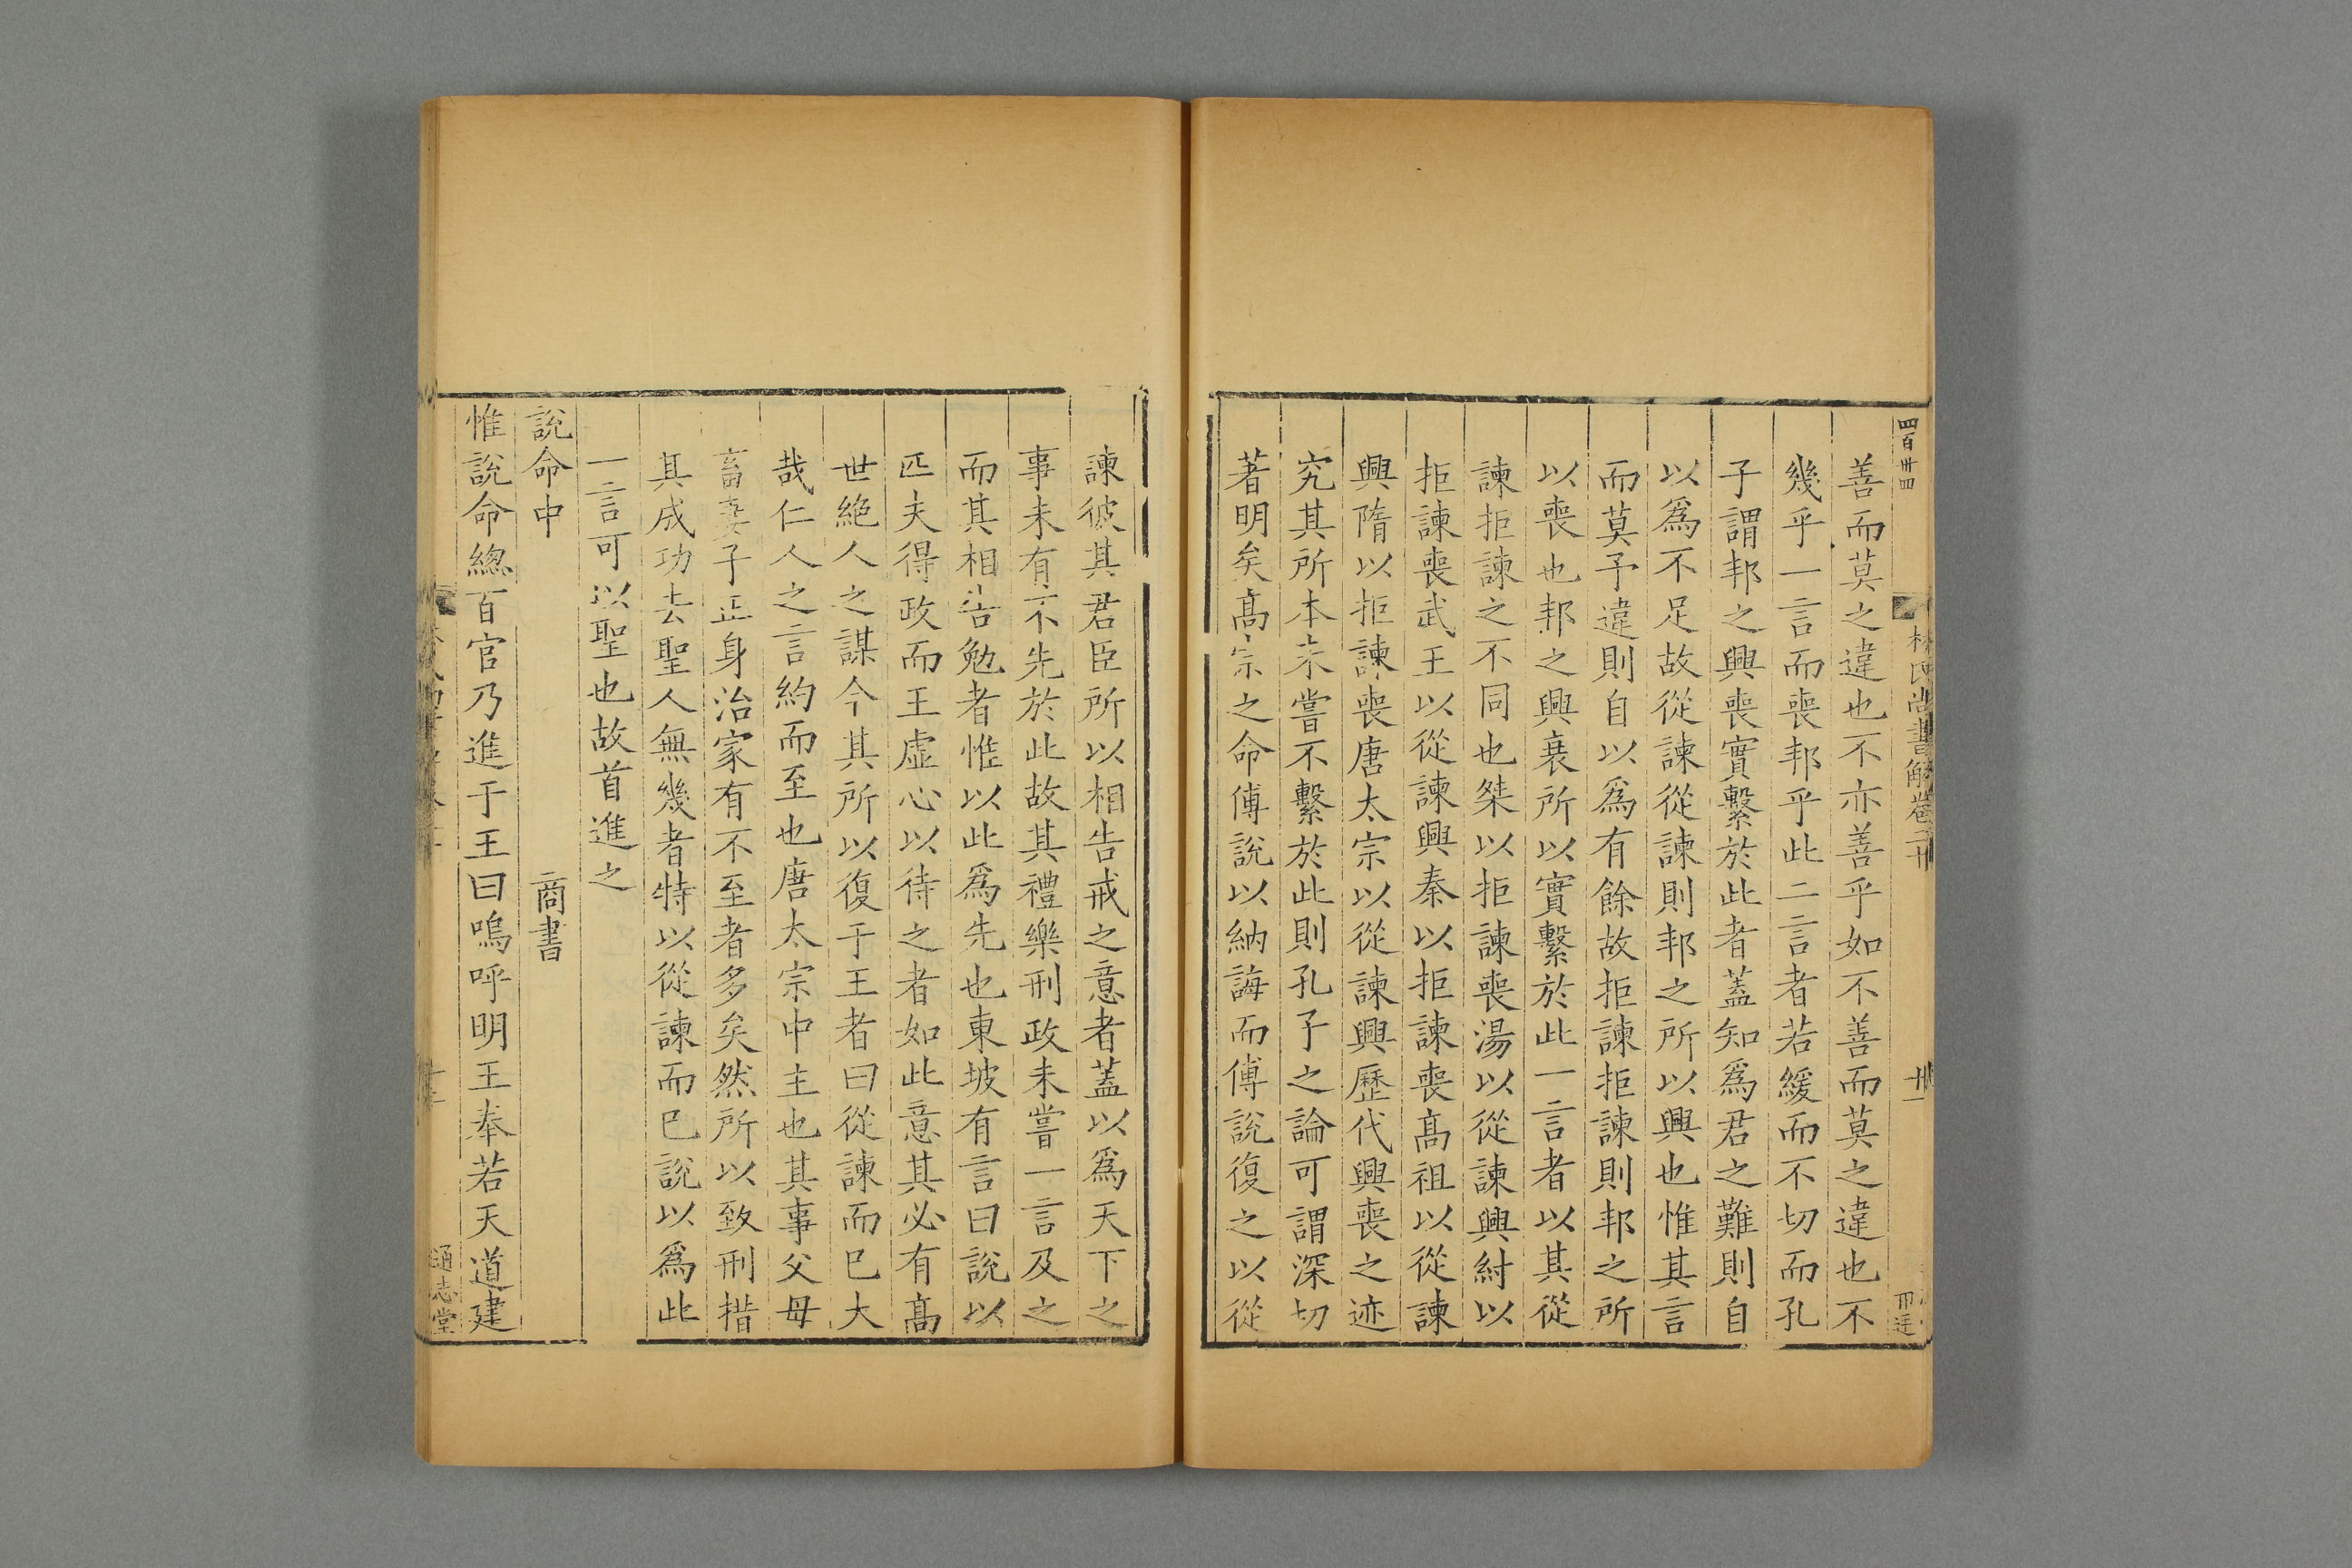 四百卅四
林氏尚書解卷二十
廿一
善而莫之違也不亦善乎如不善而莫之違也不
幾乎一言而喪邦乎此二言者若緩而不切而孔
子謂邦之興喪實繫於此者蓋知爲君之難則自
以爲不足故從諫從諫則邦之所以興也惟其言
而莫予違則自以爲有餘故拒諫拒諫則邦之所
以喪也邦之興衰所以實繫於此一言者以其從
諫拒諫之不同也桀以拒諫喪湯以從諫興紂以
拒諫喪武王以從諫興秦以拒諫喪高祖以從諫
興隋以拒諫喪唐太宗以從諫興歷代興喪之迹
究其所本未嘗不繫於此則孔子之論可謂深切
著明矣高宗之命傅說以納誨而傅說復之以從
諫彼其君臣所以相告戒之意者蓋以爲天下之
事未有不先於此故其禮樂刑政未嘗一言及之
而其相告勉者惟以此爲先也東坡有言曰說以
匹夫得政而王虛心以待之者如此意其必有高
世絕人之謀今其所以復于王者曰從諫而已大
哉仁人之言約而至也唐太宗中主也其事父母
畜妻子正身治家有不至者多矣然所以致刑措
其成功去聖人無幾者特以從諫而已說以爲此
一言可以聖也故首進之
說命中 商書
惟說命總百官乃進于王曰嗚呼明王奉若天道建
通志堂